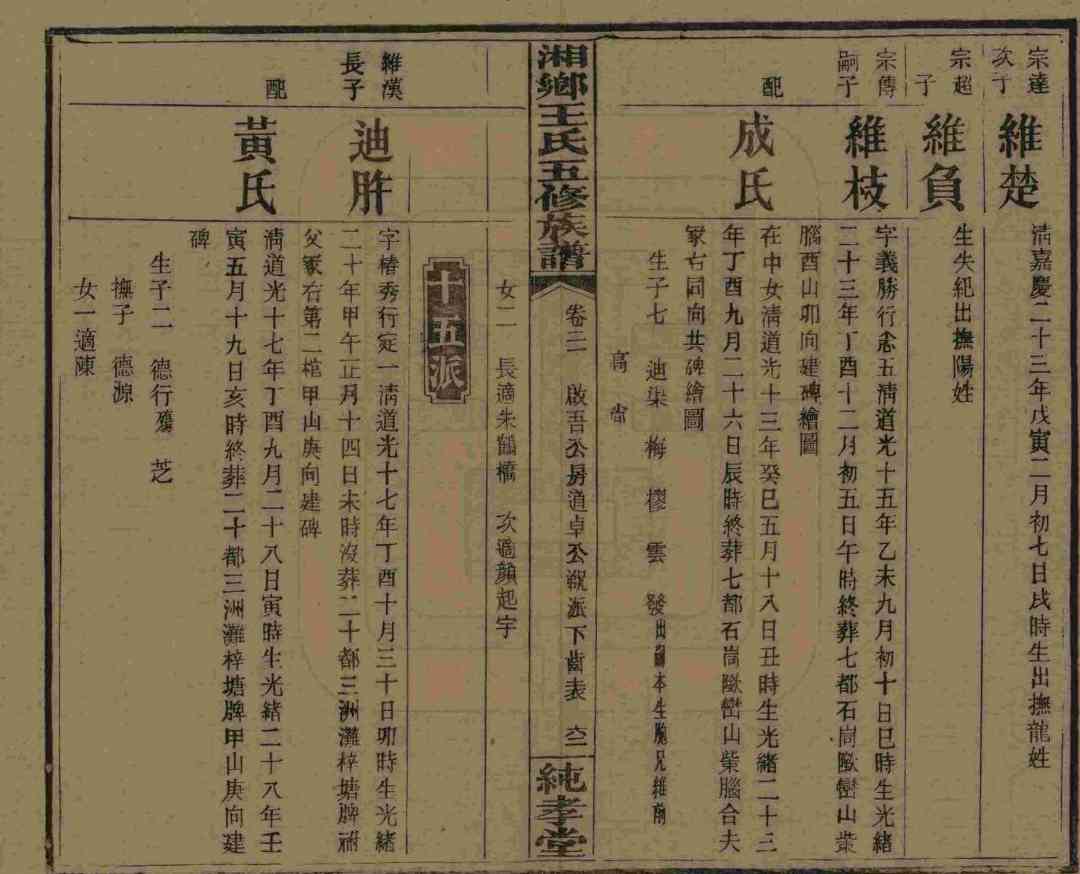 宗達次子
維楚
清嘉慶二十三年戊寅二月初七日戌時生出撫龍姓
宗超子
維負
生失紀出撫陽姓
宗傳嗣子
維枝
字義勝行念五清道光十五年乙未九月初十日巳時生光緒
二十三年丁酉十二月初五日午時終葬七都石崗㘭巒山柴
腦酉山卯向建碑繪圖
配
成氏
在中女清道光十三年癸巳五月十八日丑時生光緒二十三
年丁酉九月二十六日辰時終葬七都石崗㘭巒山柴腦合夫
冢右同向共碑繪圖
生子七 迪柒 梅 樛 雲 發出嗣本生胞兄維南
高
女二 長適朱鶴橋 次適顏起宇
湘鄉王氏五修族譜
卷三 啟吾公房道卓公親派下齒表
純孝堂
十五派
維漢長子
迪胖
字椿秀行定一清道光十七年丁酉十月三十日卯時生光緒
二十年甲午正月十四日未時沒葬二十都三洲灘梓塘牌祔
父冢右第二棺甲山庚向建碑
配
黃氏
清道光十七年丁酉九月二十八日寅時生光緒二十八年壬
寅五月十九日亥時終葬二十都三洲灘梓塘牌甲山庚向建
碑
生子二 德行殤 芝
撫子 德源
女一適陳